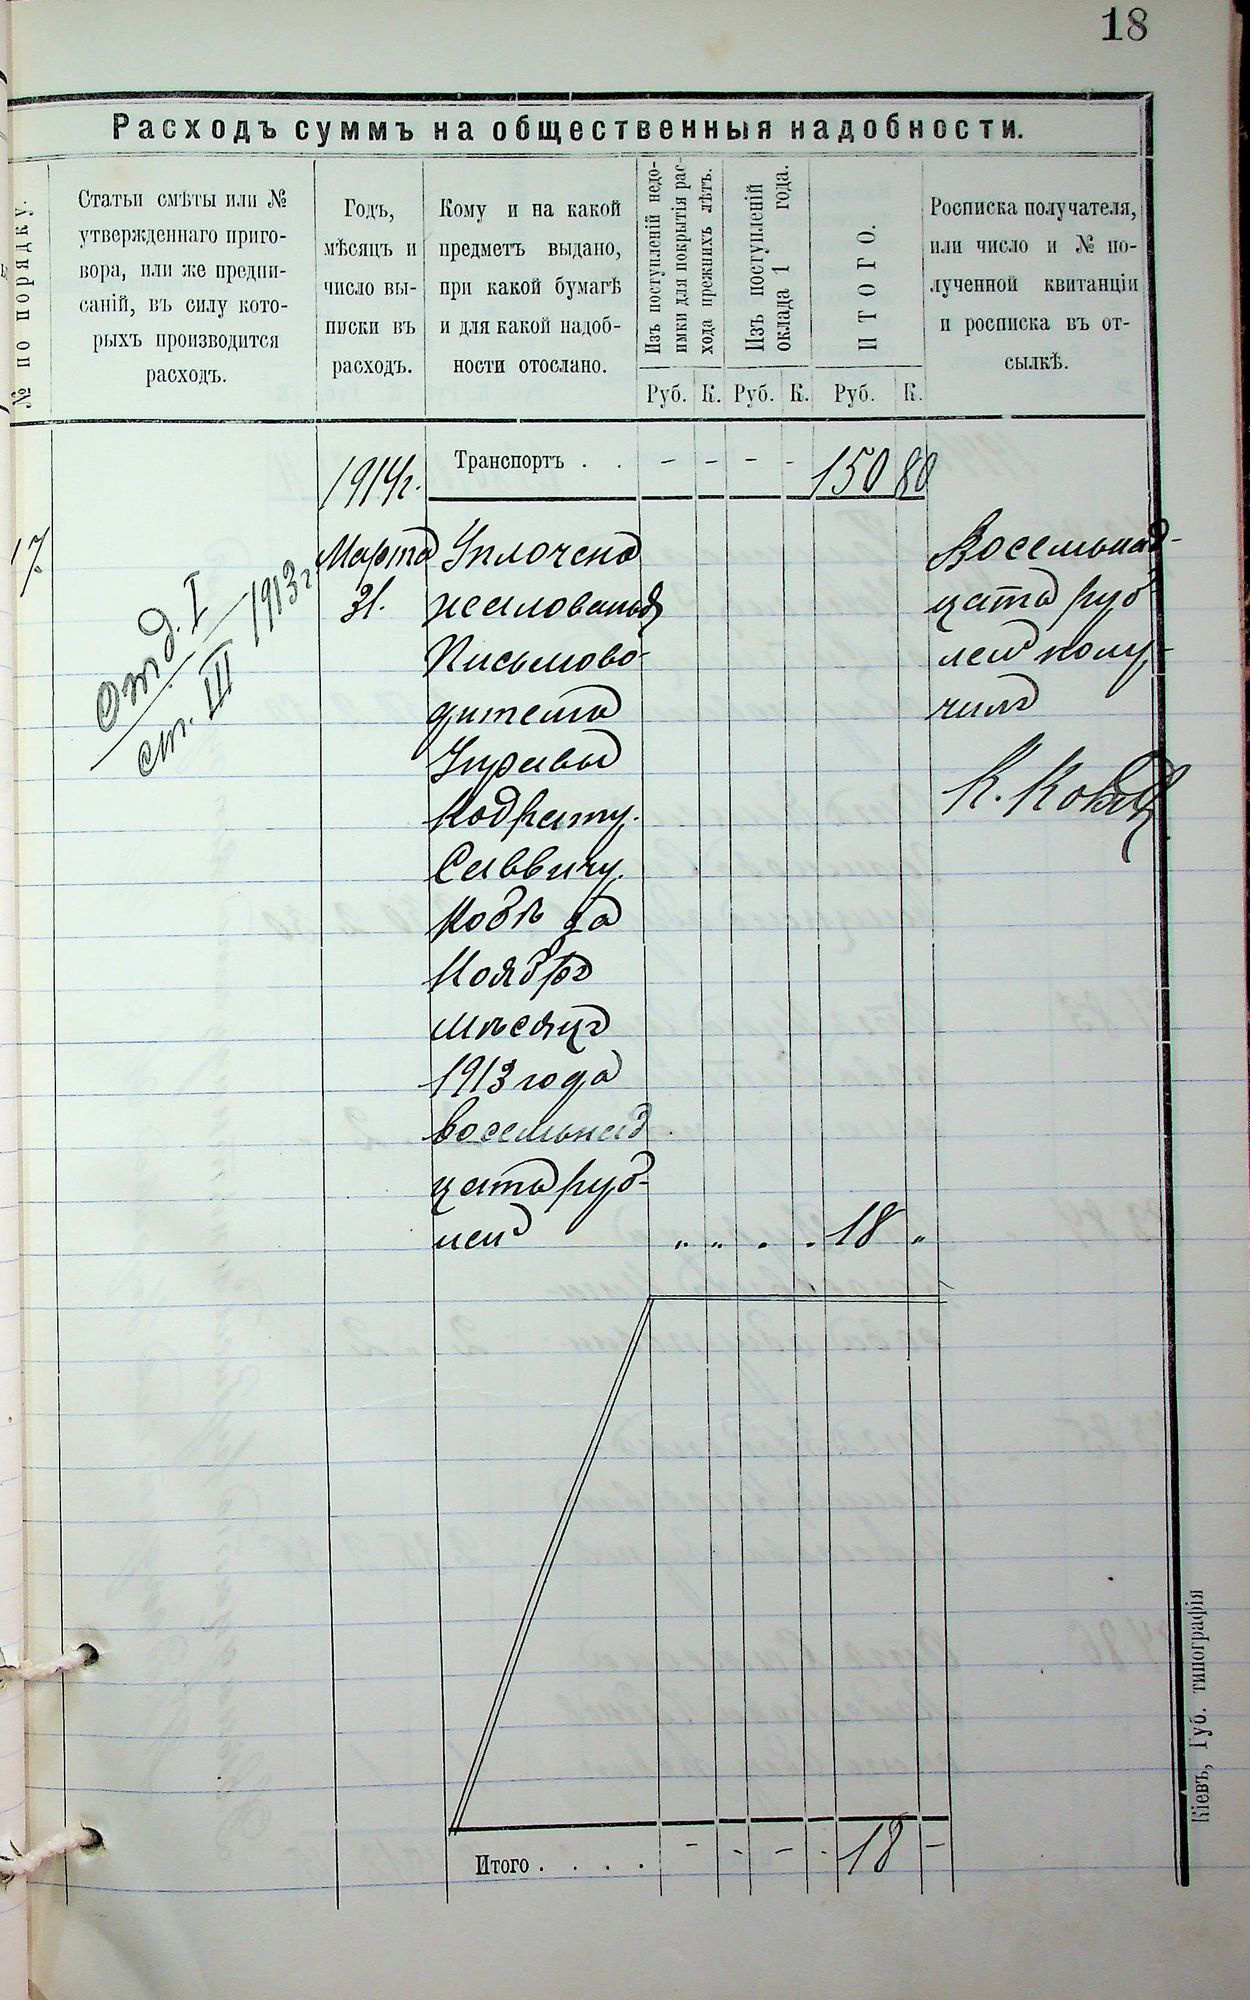 18
Расходъ суммъ на общественныя надобности.
№ по порядку.
Статьи смѣты или №
утвержденнаго приго-
вора, или же предпи-
саній, въ силу кото-
рыхъ производится
расходъ.
Годъ,
мѣсяцъ и
число вы-
писки въ
расходъ.
Кому и на какой
предметъ выдано,
при какой бумагѣ
и для какой надоб-
ности отослано.
Изъ поступленій недо-
имки для покрытія рас-
хода прежнихъ лѣтъ.
Изъ поступленій
оклада 1 года.
ИТОГО.
Росписка получателя,
или число и № по-
лученной квитанціи
и росписка въ от-
сылкѣ.
Руб. К. Руб. К. Руб. К.
1914 г.
Транспортъ . . - - - - 150 80
17
отд. I
ст. III 1913 г.
Марта
31.
Уплочено
жалованья
Письмово-
дителю
Управы
Кодрату
Саввичу
Кобъ за
Ноябрь
мѣсяцъ
1913 года
восемьнад
цать руб-
лей „ „ . . 18 „
Восемьнад-
цать руб-
лей полу-
чилъ
К. Кобъ
Итого . . . . - - - . 18 -
Кіевъ, Губ. типографія